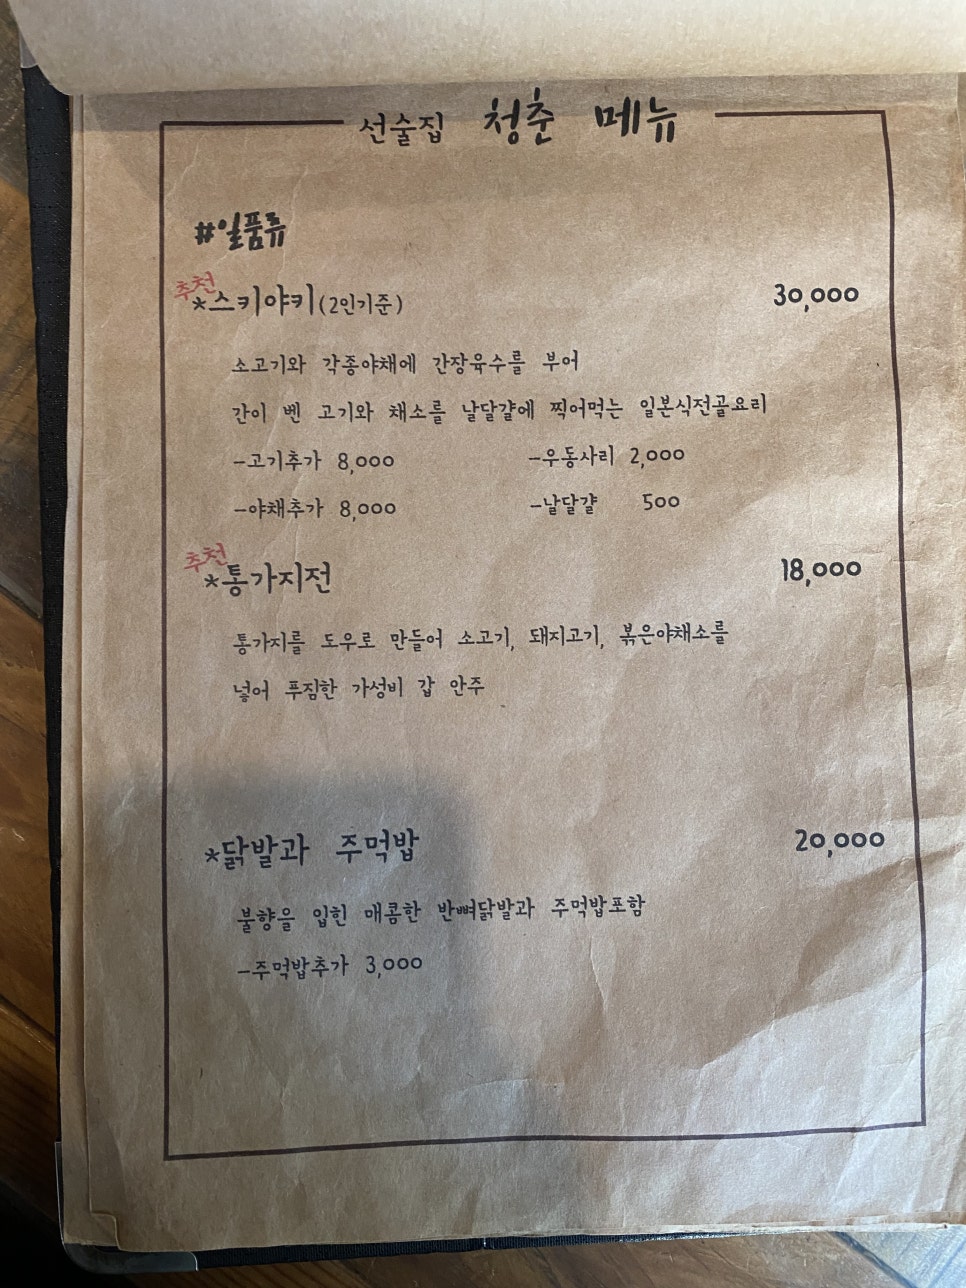 선술집 청춘 메뉴
#일품류
추천
*스키야키(2인기준) 30,000
소고기와 각종야채에 간장육수를 부어
간이 벤 고기와 채소를 날달걀에 찍어먹는 일본식전골요리
-고기추가 8,000 -우동사리 2,000
-야채추가 8,000 -날달걀 500
추천
*통가지전 18,000
통가지를 도우로 만들어 소고기, 돼지고기, 볶은야채소를
넣어 푸짐한 가성비 갑 안주
*닭발과 주먹밥 20,000
불향을 입힌 매콤한 반뼈닭발과 주먹밥포함
-주먹밥추가 3,000